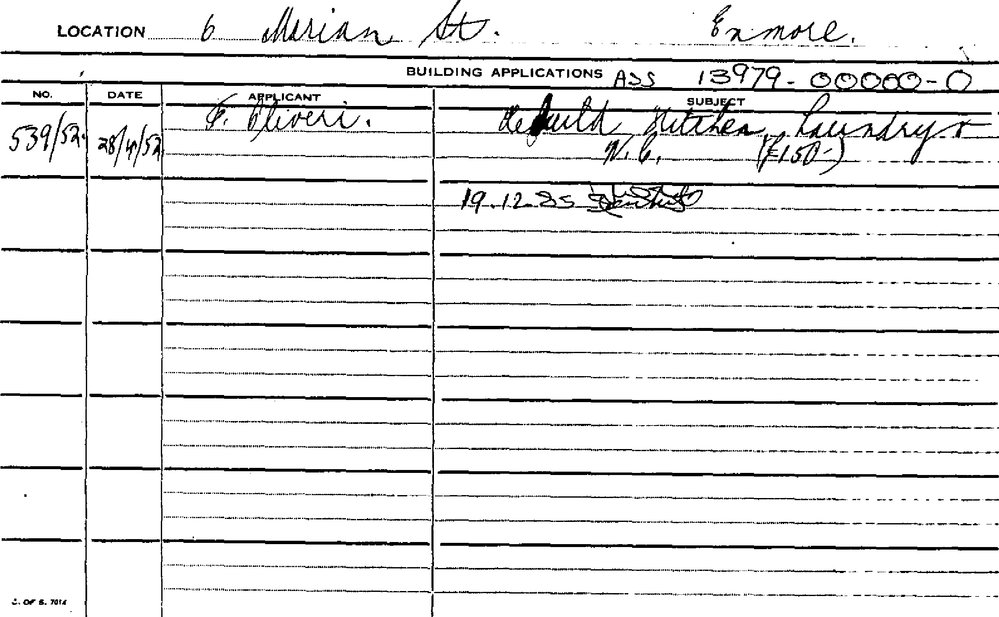 LOCATION 6 Marian St. Enmore.
BUILDING APPLICATIONS ASS 13979-00000-0
NO. DATE APPLICANT SUBJECT
539/52. 28/4/52 F. Oliveri. Rebuild Kitchen, Laundry &
W.C. (£150-)
19.12.85
C. OF S. 7014